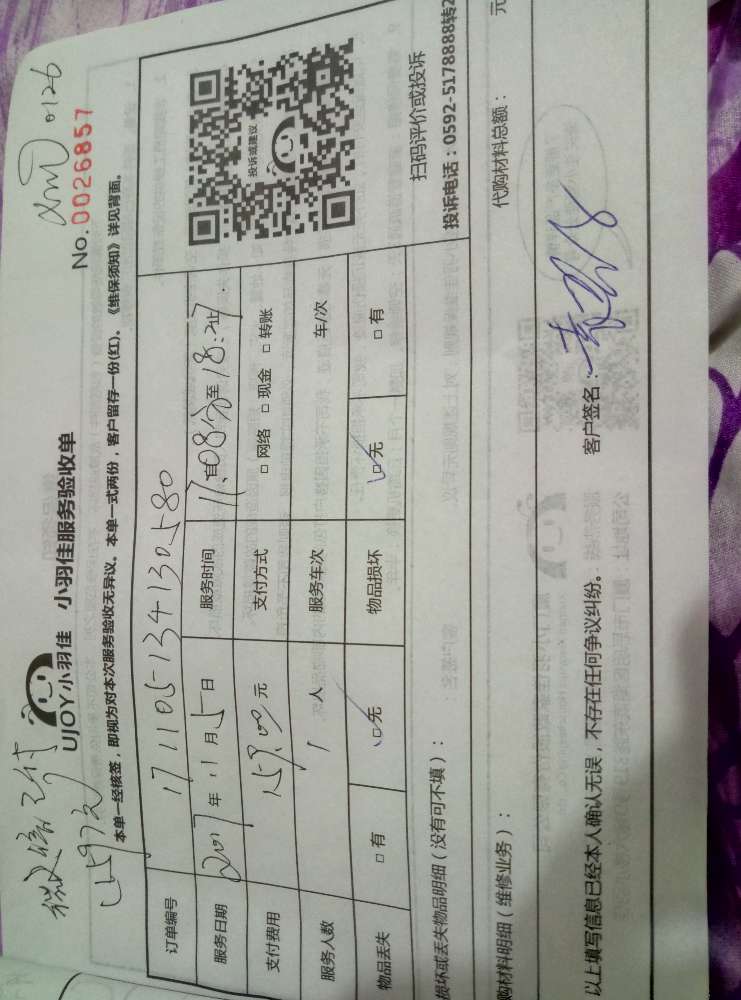 0126
No. 0026857
微信已付
159元
UJOY小羽佳 小羽佳服务验收单
本单一经核签，即视为对本次服务验收无异议。本单一式两份，客户留存一份(红)、《维保须知》详见背面。
订单编号 171105134130580
服务日期 2017年11月5日 服务时间 17:08分至18:27
支付费用 159.00元 支付方式 □网络 □现金 □转账
服务人数 1人 服务车次 车/次
物品丢失 □有 □无 物品损坏 □无 □有
投诉或建议
扫码评价或投诉
投诉电话：0592-5178888转2
损坏或丢失物品明细（没有可不填）：
购材料明细（维修业务）： 代购材料总额： 元
以上填写信息已经本人确认无误，不存在任何争议纠纷。 客户签名：